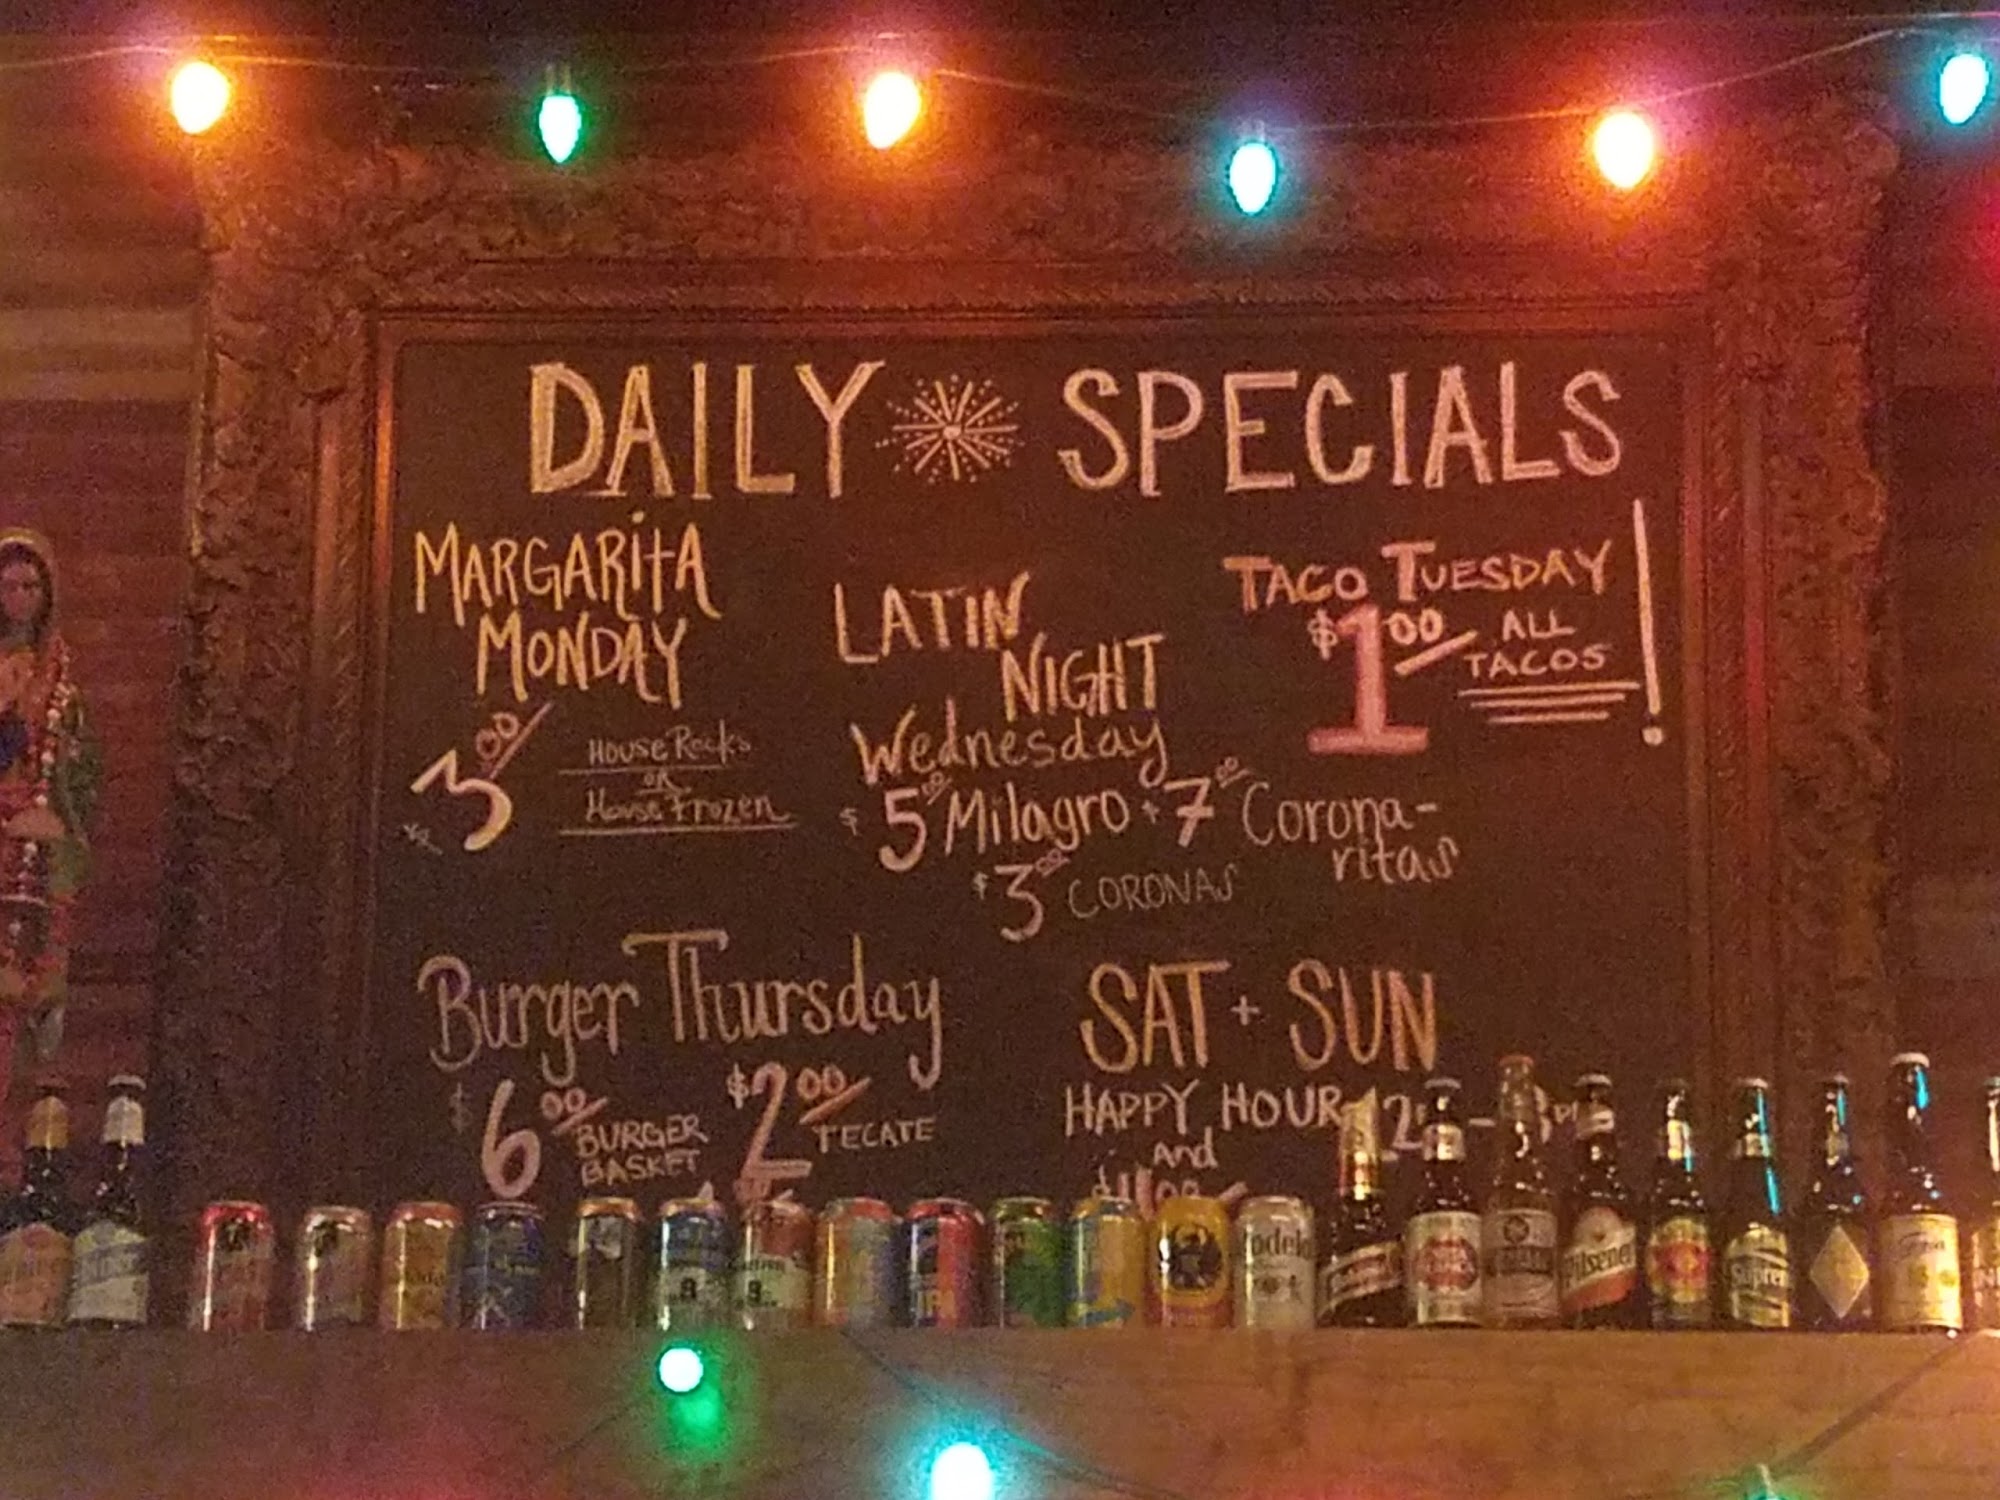 DAILY SPECIALS
MARGARITA
MONDAY
3 00
House Rocks
OR
House Frozen
LATIN
NIGHT
Wednesday
$5 00 Milagro + 7 00 Corona-
ritas
$3 00 CORONAS
TACO TUESDAY !
$1 00 ALL
TACOS
Burger Thursday
$6 00 BURGER
BASKET
$2 00 TECATE
SAT + SUN
HAPPY HOUR 12
and
Pilsener